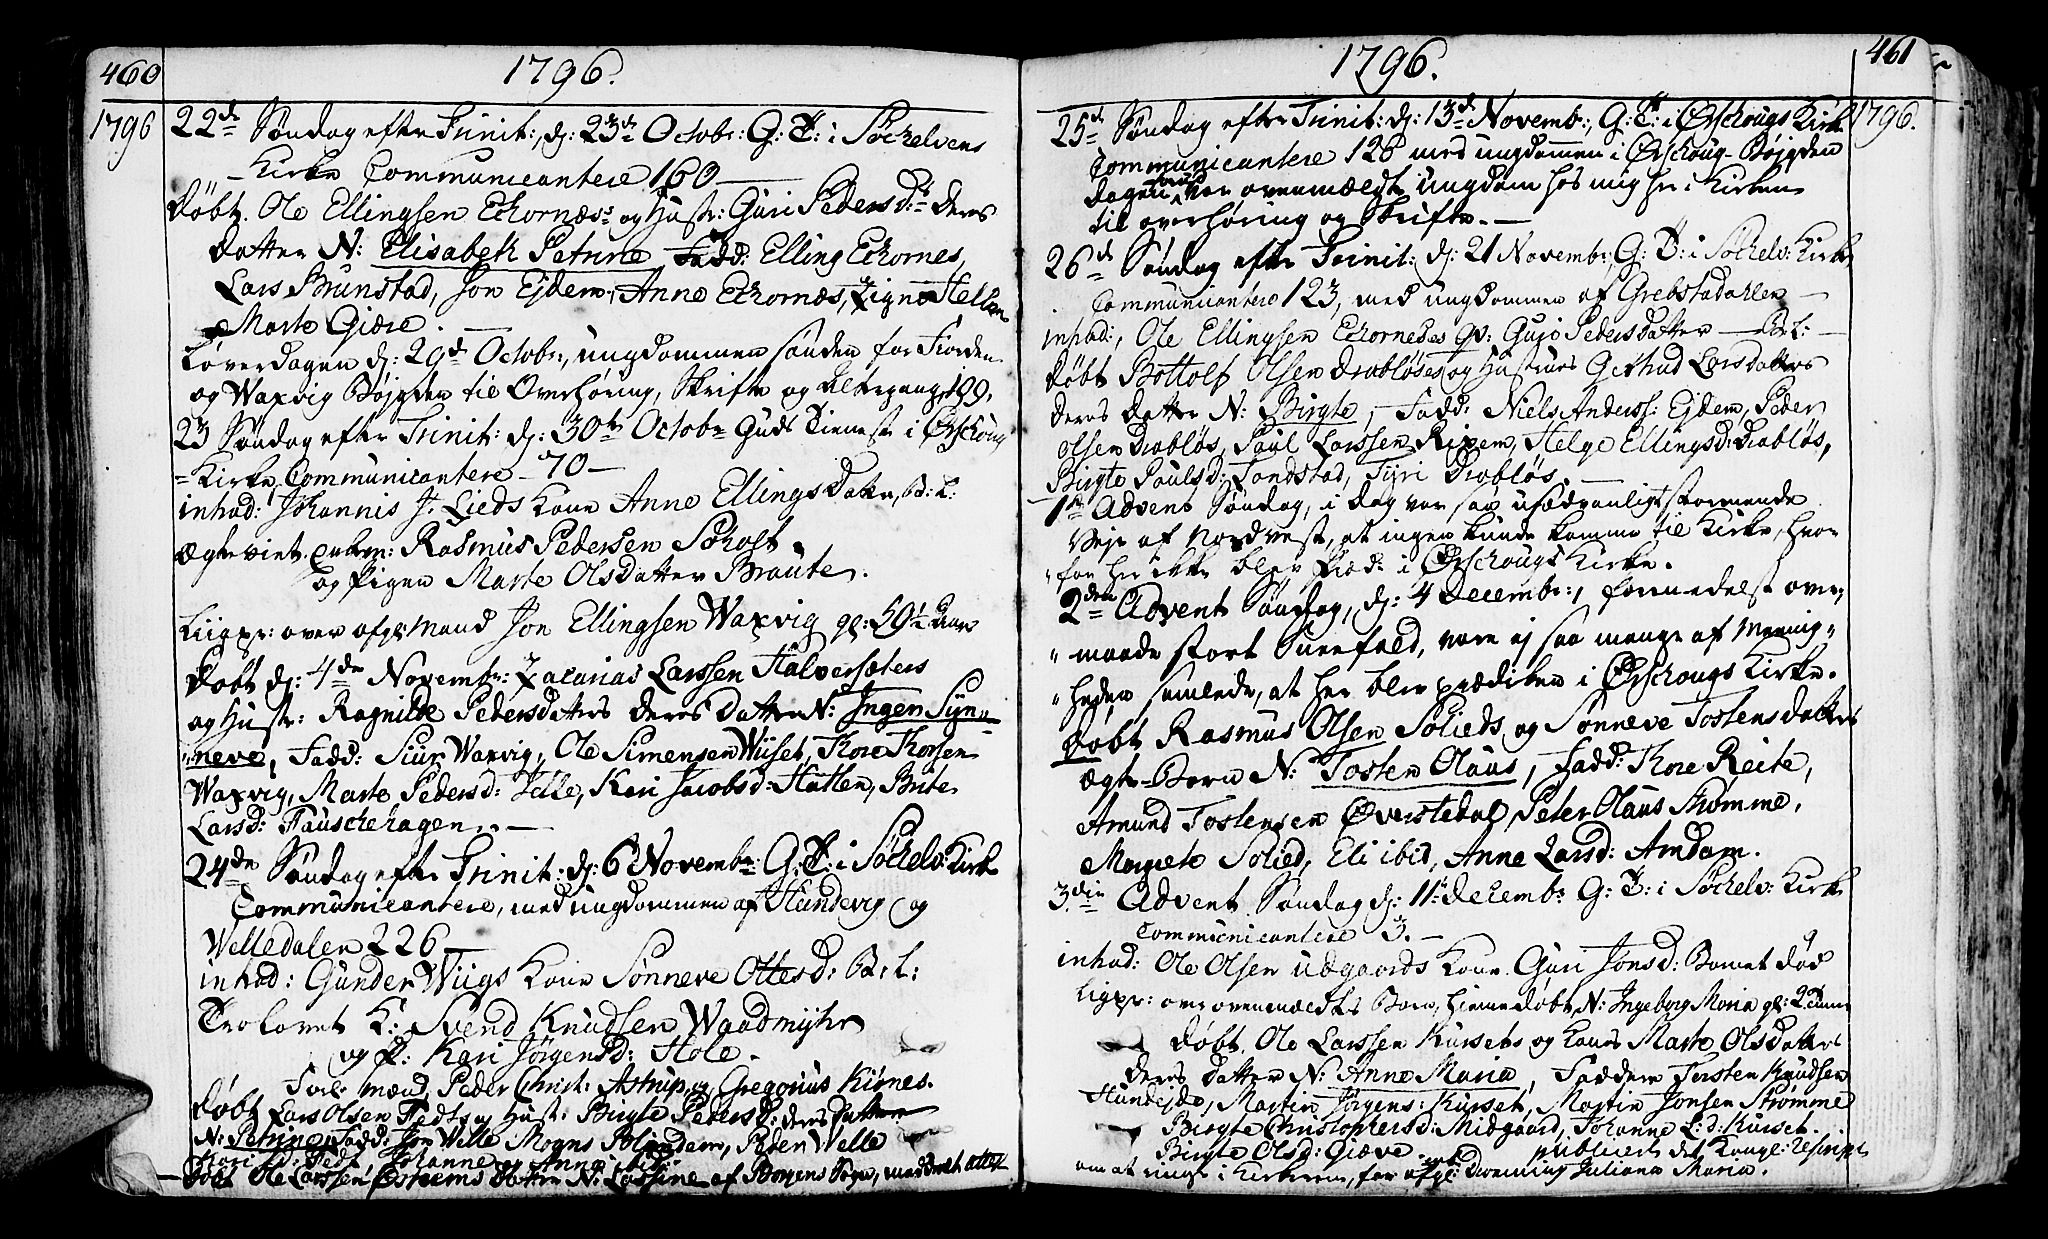 460
1796.
1796
22de Søndag efter Trinit: dj: 23de Octobr: G: T: i Søchelvens
Kirke Communicantere 160
Døbt. Ole Ellingsen Echornæs og Hustr: Guri Pedersd: deres
datter N: Elisabeth Petrine Fadd: Elling Echornes,
Lars Brunstad, Jon Ejdem, Anne Echornæs, Zigne Hellen
Marte Giære.
Løverdagen dj: 29de Octobr:, ungdommen sønden for Fiorden
og Waxvig Bøjgden til Overhøring, Skrifte og Altergang, 199.
23 Søndag efter Trinit: dj: 30te Octobr Guds Tieneste i Ørschoug
Kirke, Communicantere 70
inhad: Johannis J. Lieds Kone Anne Ellings Datter, B: L:
Ægteviet. Enkem: Rasmus Pedersen Scholt
og Pigen Marte Olsdatter Braute.
Liigpr: over afg: Mand Jon Ellingsen Waxvig gl: 59½ Aar
Døbt dj: 4de Novembr: Zacarias Larssen Halversæters
og Hustr: Ragnilde Pedersdatters deres Datter N: Ingen Syn-
neve, Fadd: Siur Waxvig, Ole Simensen Wiiset, Thore Thorsen
Waxvig, Marte Pedersd: Jelle, Kari Jacobsd: Hatlen, Brite
Larsd: Fauschehagen.
24de Søndag efter Trinit: dj: 6 Novembr: G: T: i Søchelv: Kirke
Communicantere, med ungdommen af Hundevig og
Welledalen 226
inhad: Gunder Wiigs Kone Sønneve Ottesd: B: L:
Trolovet K: Svend Knudsen Waadmyhr
og P: Kari Jørgensd: Hole.
Forl: mænd, Peder Christ: Astrup og Gregorius Kiørnes.
Døbt Lars Olsen Fedts og Hustr: Birgte Pedersd: deres datter
N: Petrine, Fadd: Jon Welle Mogns Blindem, Peder Welle
Johanne Anne ibid:
Døbt Ole Larssen datter N: Lassine af Borgens Sogn,
461
1796.
1796.
25de Søndag efter Trinit: dj: 13de Novembr: G: T: i Ørschougs Kirke
Communicantere 128 med ungdommen i Ørschoug-Bøjgden
dagen var ovenmældte ungdom hos mig her i Kirken
til overhøring og Skrifte.
26de Søndag efter Trinit: dj: 21 Novembr: G: T: i Søchelv: Kirke
Communicantere 123, med ungdommen af Grebstadahlen
inhad: Ole Ellingsen Echorneses qv: Gurjo Pedersdatter B: L:
Døbt Bottolf Olsen Drabløses og Hustrues Gertrud Larsdatters
deres datter N: Birgte, Fadd: Niels Anderss: Ejdem, Peder
Olsen Drabløs, Paul Larssen Rixem, Helge Ellingsd: Drabløs,
Birgte Paulsd: Landstad, Tyri Drabløs.
1te Advent Søndag, i dag var saa usædvanligt stormende
Vejr af Nordvest, at ingen kunde komme til Kirke, hvor-
for her ikke blev Præd: i Ørschougs Kirke.
2den Advent Søndag, dj: 4 Decembr:, formedelst over-
maade stort Sneefald, vare ej saa mange af Menig-
heden samlede, at her blev prædiken i Ørschougs Kirke.
Døbt Rasmus Olsen Solieds og Sønneve Tostensdatters
ægte-Barn N: Tosten Olaus, Fadd: Thore Reite,
Amund Tostensen Øverstedal, Peter Olaus Strømme,
Margrete Solied, Eli ibid, Anne Larsd: Amdam.
3die Advent Søndag dj: 11te Decembr G: T: i Søchelv: Kirke
Communicantere 3.
inhad: Ole Olsen Udgaards Kone Guri Jonsd: Barnet død
Ligpr: over ovenmældtes Barn, hiemedøbt N: Ingeborg Maria gl: 2
Døbt. Ole Larssen Kursets og Kones Marte Olsdatters
deres datter N: Anne Maria, Faddere Torsten Knudsen
Hundejde, Martin Jørgens: Kurset, Martin Jonsen Strømme
Birgte Christophersd: Midgaard, Johanne L: d: Kurset.
Birgte Olsd: Giæve. publiceret det Kongl: Rescript
om at ringe i Kirkerne, for afg: Dronning Juliana Maria.